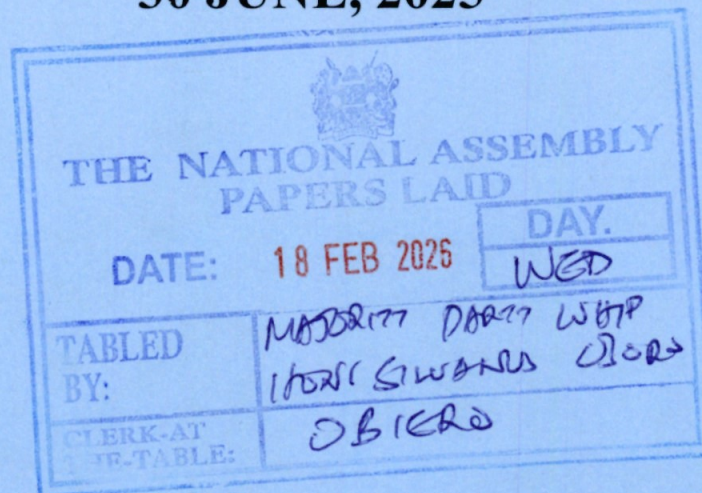 30 JUNE, 2025
THE NATIONAL ASSEMBLY
PAPERS LAID
DATE: 18 FEB 2026
DAY.
WED
TABLED BY:
MAJORITY PARTY WHIP
HON SILVANUS OSORO
CLERK-AT THE-TABLE:
OBIERO